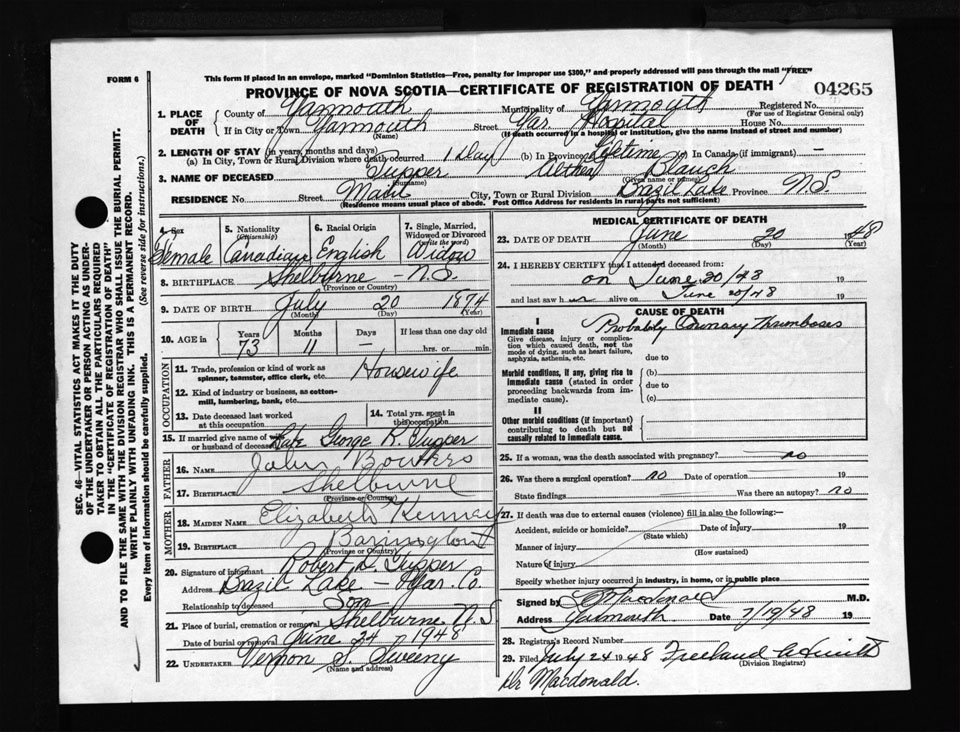 FORM 6
This form if placed in an envelope, marked "Dominion Statistics—Free, penalty for improper use $300," and properly addressed will pass through the mail "FREE"
PROVINCE OF NOVA SCOTIA—CERTIFICATE OF REGISTRATION OF DEATH
04265
1. PLACE OF DEATH
County of Yarmouth Municipality of Yarmouth Registered No.
(For use of Registrar General only)
If in City or Town Yarmouth Street Yar. Hospital House No.
(Name) (If death occurred in a hospital or institution, give the name instead of street and number)
2. LENGTH OF STAY (in years, months and days)
(a) In City, Town or Rural Division where death occurred 1 Day (b) In Province Lifetime (c) In Canada (if immigrant) —
3. NAME OF DECEASED Tupper Althea Blanch
(Surname) (Given name or names)
RESIDENCE No. Street Main City, Town or Rural Division Brazil Lake Province N.S.
(Residence means usual place of abode. Post Office Address for residents in rural parts not sufficient)
4. Sex Female
5. Nationality (Citizenship) Canadian
6. Racial Origin English
7. Single, Married, Widowed or Divorced (write the word) Widow
8. BIRTHPLACE Shelburne - N.S.
(Province or Country)
9. DATE OF BIRTH July 20 1874
(Month) (Day) (Year)
10. AGE in Years 73 Months 11 Days — If less than one day old
hrs. or min.
OCCUPATION
11. Trade, profession or kind of work as spinner, teamster, office clerk, etc. Housewife
12. Kind of industry or business, as cotton-mill, lumbering, bank, etc.
13. Date deceased last worked at this occupation
14. Total yrs. spent in this occupation
15. If married give name of wife or husband of deceased Late George R. Tupper
FATHER
16. NAME John Bowers
17. BIRTHPLACE Shelburne
(Province or Country)
MOTHER
18. MAIDEN NAME Elizabeth Kenney
19. BIRTHPLACE Barington
(Province or Country)
20. Signature of informant Robert L. Tupper
Address Brazil Lake - Yar. Co.
Relationship to deceased Son
21. Place of burial, cremation or removal Shelburne N.S
Date of burial or removal June 24 1948
22. UNDERTAKER Vernon S. Sweeny
(Name and address)
MEDICAL CERTIFICATE OF DEATH
23. DATE OF DEATH June 20 1948
(Month) (Day) (Year)
24. I HEREBY CERTIFY that I attended deceased from:
on June 20/48 19
and last saw her alive on June 20/48 19
CAUSE OF DEATH
I
Immediate cause
Give disease, injury or complication which caused death, not the mode of dying, such as heart failure, asphyxia, asthenia, etc.
Probably Coronary Thromboses
due to
Morbid conditions, if any, giving rise to immediate cause (stated in order proceeding backwards from immediate cause).
(b)
due to
(c)
II
Other morbid conditions (if important) contributing to death but not causally related to immediate cause.
25. If a woman, was the death associated with pregnancy? no
26. Was there a surgical operation? no Date of operation 19
State findings Was there an autopsy? no
27. If death was due to external causes (violence) fill in also the following:—
Accident, suicide or homicide? Date of injury 19
(State which)
Manner of injury
(How sustained)
Nature of injury
Specify whether injury occurred in industry, in home, or in public place
Signed by Macdonald M.D.
Address Yarmouth Date 7/19/48 19
28. Registrar's Record Number
29. Filed July 24 1948 Freeland
(Division Registrar)
Dr Macdonald.
SEC. 46—VITAL STATISTICS ACT MAKES IT THE DUTY
OF THE UNDERTAKER OR PERSON ACTING AS UNDER-
TAKER TO OBTAIN ALL THE PARTICULARS REQUIRED
IN THE "CERTIFICATE OF REGISTRATION OF DEATH"
AND TO FILE THE SAME WITH THE DIVISION REGISTRAR WHO SHALL ISSUE THE BURIAL PERMIT.
WRITE PLAINLY WITH UNFADING INK. THIS IS A PERMANENT RECORD.
Every item of information should be carefully supplied. (See reverse side for instructions.)